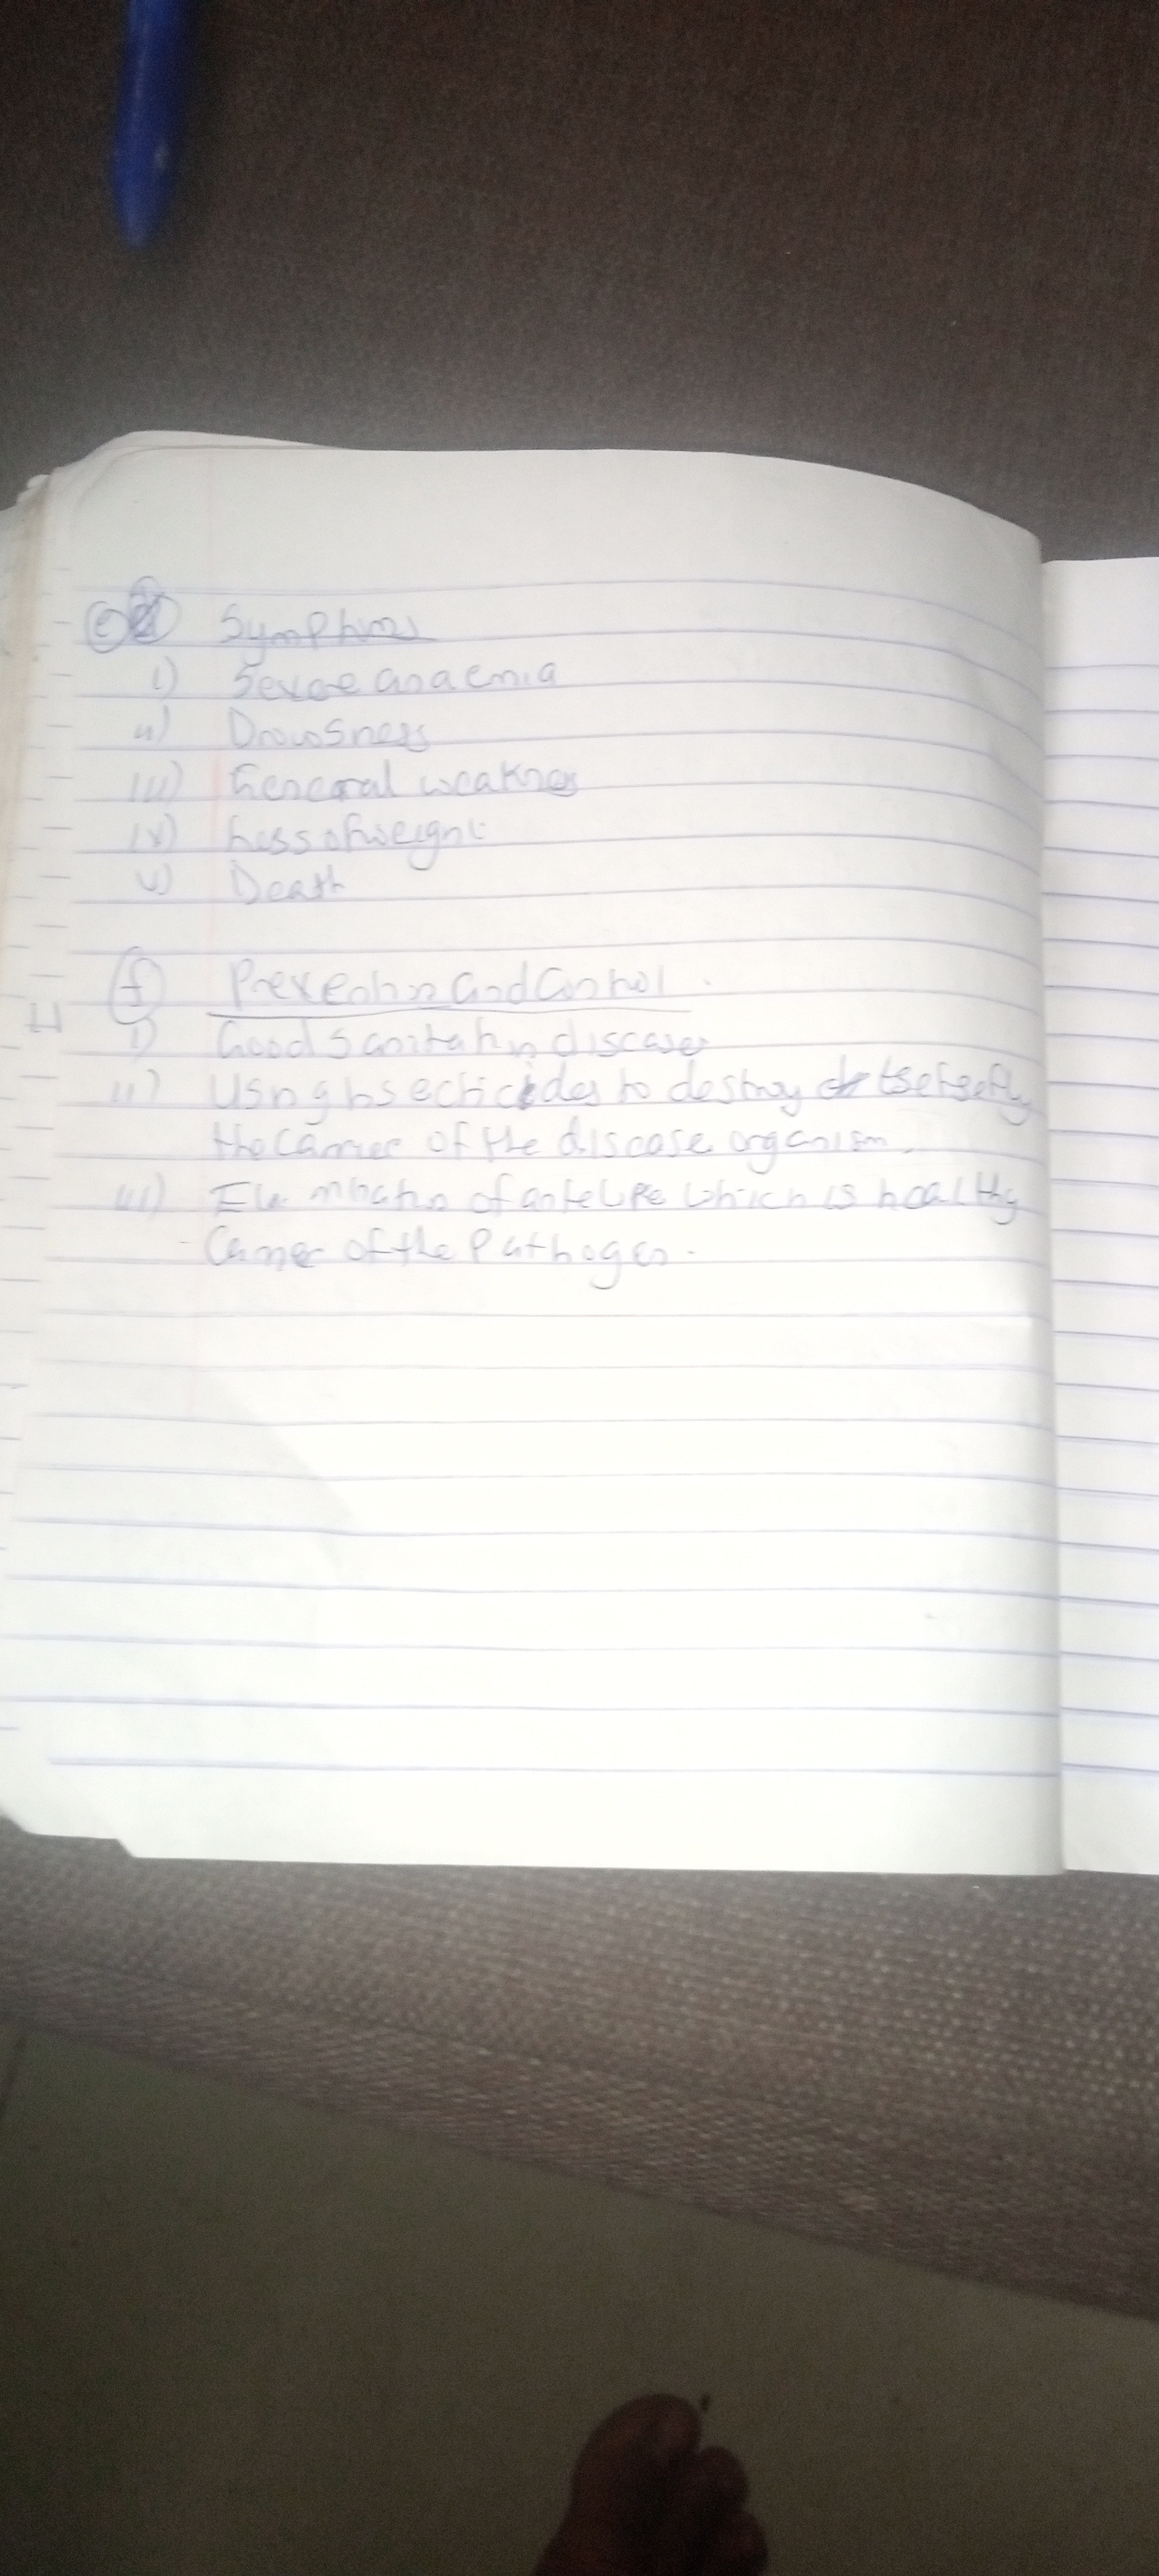 e) Symptoms
i) Severe anaemia
ii) Drowsness
iii) General weakness
iv) Loss of weight
v) Death
f) Prevention and Control.
i) Good Sanitation diseases
ii) Using insecticides to destroy tsetsefly
the carrier of the disease organism.
iii) Elimination of antelope which is healthy
Carrier of the Pathogen.